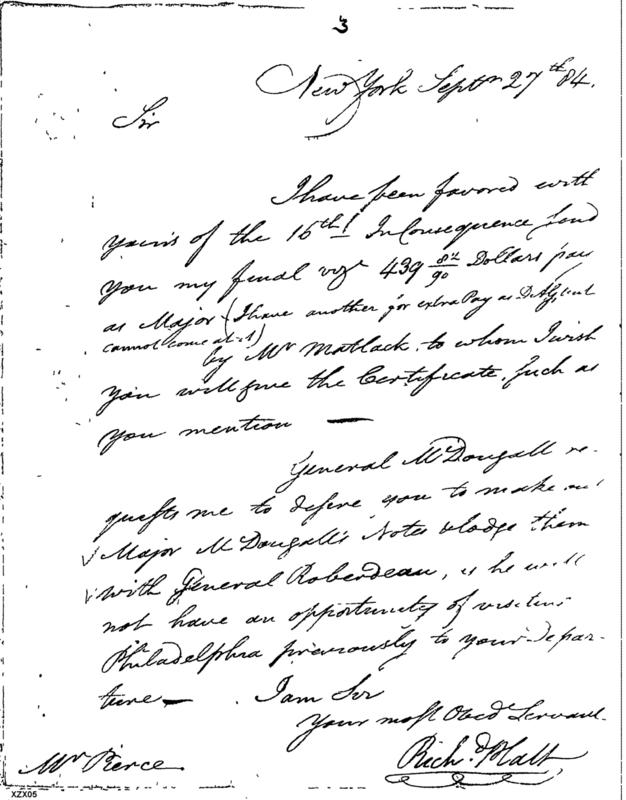 3
New York Septr 27th 84.
Sir
I have been favored with
yours of the 16th! In Consequence send
you my final vizt 439 82/90 Dollars pay
as Major (I have another for extra Pay as D. Adjt but
cannot come at it)
by Mr Matlack, to whom I wish
you will give the Certificate, Such as
you mention —
General McDougall re-
quests me to desire you to make out
Major McDougall's Notes & lodge them
with General Roberdeau, as he will
not have an opportunity of visiting
Philadelphia previously to your Depar-
ture — I am Sir
Your most Obedt Servant.
Richd Platt
Mr Pierce.
XZX05